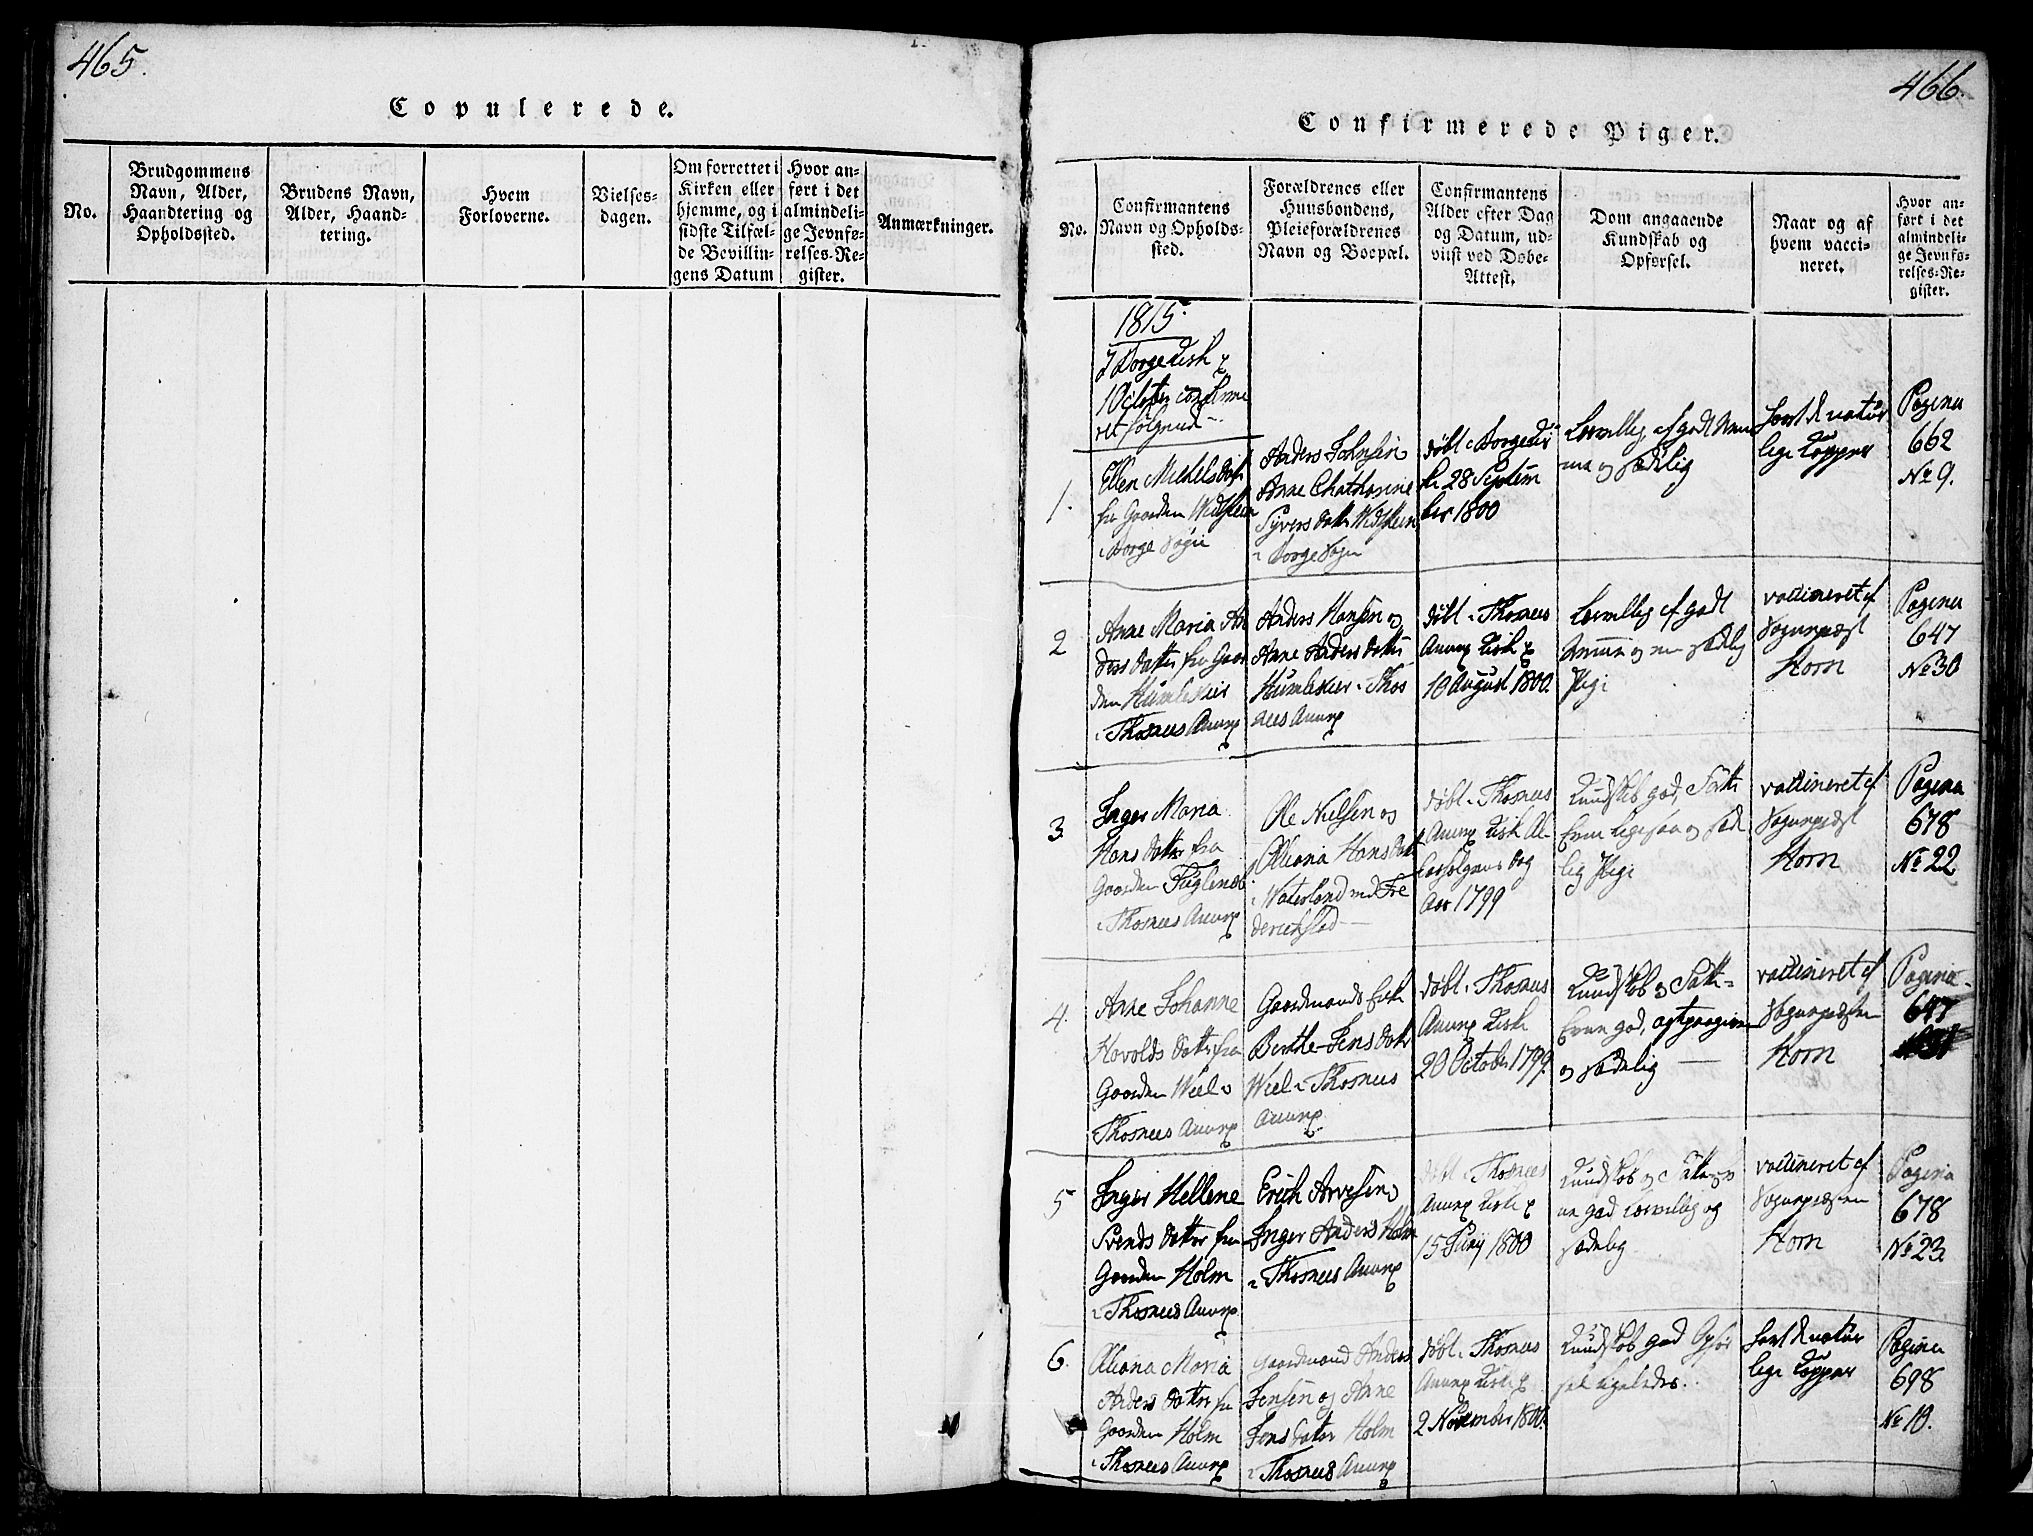 465.
Copulerede.
No.
Brudgommens
Navn, Alder,
Haandtering og
Opholdssted.
Brudens Navn,
Alder, Haand-
tering.
Hvem
Forloverne.
Vielses-
dagen.
Om forrettet i
Kirken, eller
hjemme, og i
sidste Tilfæl-
de Bevillin-
gens Datum
Hvor an-
ført i det
almindeli-
ge Jevnfø-
relses-Re-
gister.
Anmærkninger.
466.
Confirmerede Piger.
No.
Confirmantens
Navn og Opholds-
sted.
Forældrenes eller
Huusbondens,
Pleieforældrenes
Navn og Boepæl.
Confirmantens
Alder efter Dag
og Datum, ud-
viist ved Døbe-
Attest.
Dom angaaende
Kundskab og
Opførsel.
Naar og af
hvem vacci-
neret.
Hvor an-
ført i det
almindeli-
ge Jevnfø-
relses-Re-
gister.
1815.
I Borge Kirke
1 October confirme
ret følgende
1.
Ellen Michelsdatter
fra Gaarden
i Borge Sogn
Anders Johnsen
Anne Chatharine
Syvers Datter
i Borge Sogn
døbt i Borge Kir
ke 28 Septem
ber 1800
Lærvillig, af godt Nem
me og sædelig
havt de natur
lige Kopper
Pagina
662
No 9.
2
Anne Maria An
ders Datter fra Gaar
den Humlekier
i Thosnees Annex
Anders Hansen og
Anne Anders Datter
Humlekier i Thos
nees Annex
døbt i Thosnees
Annex Kirke
10 August 1800.
Lærvillig af godt
Nemme og en sædelig
Pige
vaccineret af
Sognepræst
Horn
Pagina
647
No 30
3
Inger Maria
Hans Datter fra
Gaarden
i Thosnees Annex
Ole Nielsen og
Oliana Hans Datter
i Waterland ved Fre
derichstad
døbt i Thosnees
Annex Kirke Al
lehelgens Dag
Aar 1799
Kundskab god, Fatte
Evne ligesaa og sæde
lig Pige
vaccineret af
Sognepræst
Horn
Pagina
678
No 22
4.
Anne Johanne
Havolds Datter fra
Gaarden Weel i
Thosnees Annex
Gaardmands Enke
Berthe Jens Datter
Weel i Thosnees
Annex
døbt i Thosnees
Annex Kirke
20 October 1799.
Kundskab og Fatte-
Evne god, agtpaagiven
og sædelig
vaccineret af
Sognepræsten
Horn
Pagina
647
5
Inger Hellene
Svends Datter fra
Gaarden Holm
i Thosnees Annex
Erich Arvesen
Inger Anders Holm
i Thosnees Annex
døbt i Thosnees
Annex Kirke
15 Junij 1800
Kundskab og Fatte-Ev
ne god lærvillig og
sædelig
vaccineret af
Sognepræsten
Horn
Pagina
678
No 23.
6.
Oliana Maria
Anders Datter fra
Gaarden Holm
i Thosnees Annex
Gaardmand Anders
Jensen og Anne
Jens Dater Holm
i Thosnees Annex
døbt i Thosnees
Annex Kirke
2 November 1800.
Kundskab god Opfør
sel ligeledes.
havt de natur
lige Kopper
Pagina
698
No 10.